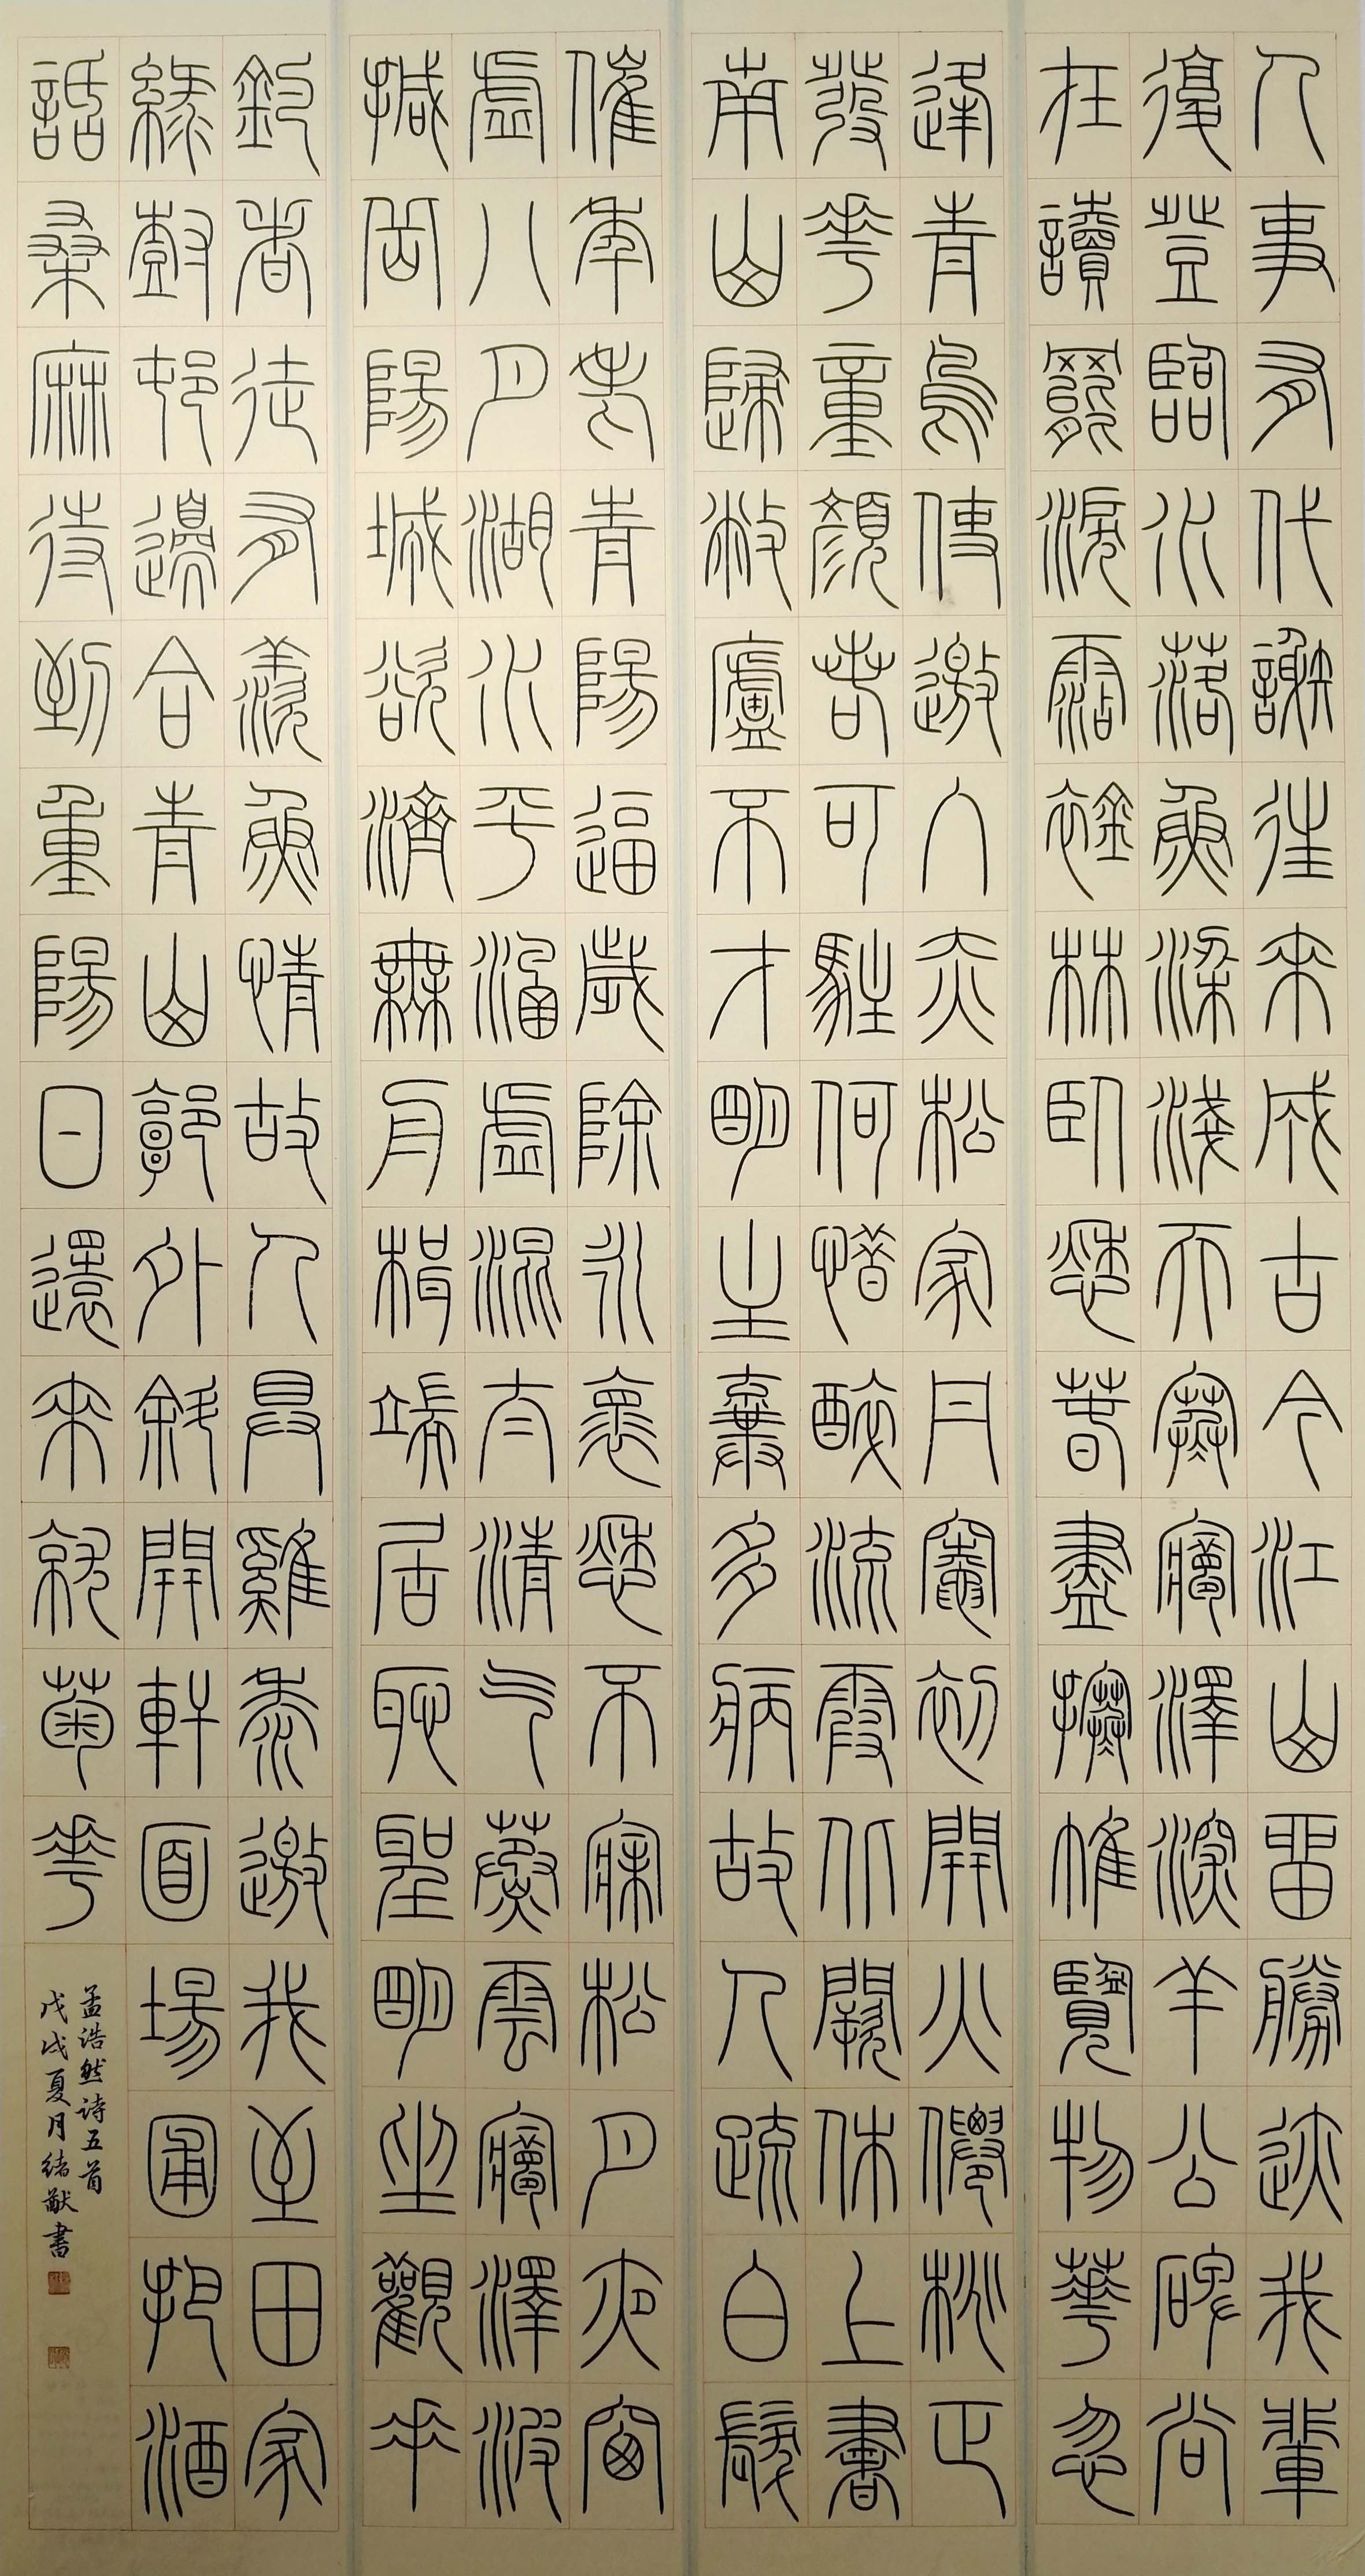 人事有代謝往來成古今江山留勝迹我輩
復登臨水落魚梁淺天寒夢澤深羊公碑尚
在讀罷淚霑襟林臥愁春盡搴帷覽物華忽
逢青鳥使邀入赤松家丹竈初開火僊桃正
發花童顏若可駐何惜醉流霞北闕休上書
南山歸敝廬不才明主棄多病故人疏白髮
催年老青陽逼歲除永懷愁不寐松月夜窗
虛八月湖水平涵虛混太清氣蒸雲夢澤波
撼岳陽城欲濟無舟楫端居恥聖明坐觀垂
釣者徒有羨魚情故人具雞黍邀我至田家
綠樹村邊合青山郭外斜開軒面場圃把酒
話桑麻待到重陽日還來就菊花
孟浩然诗五首
戊戌夏月绪猷書